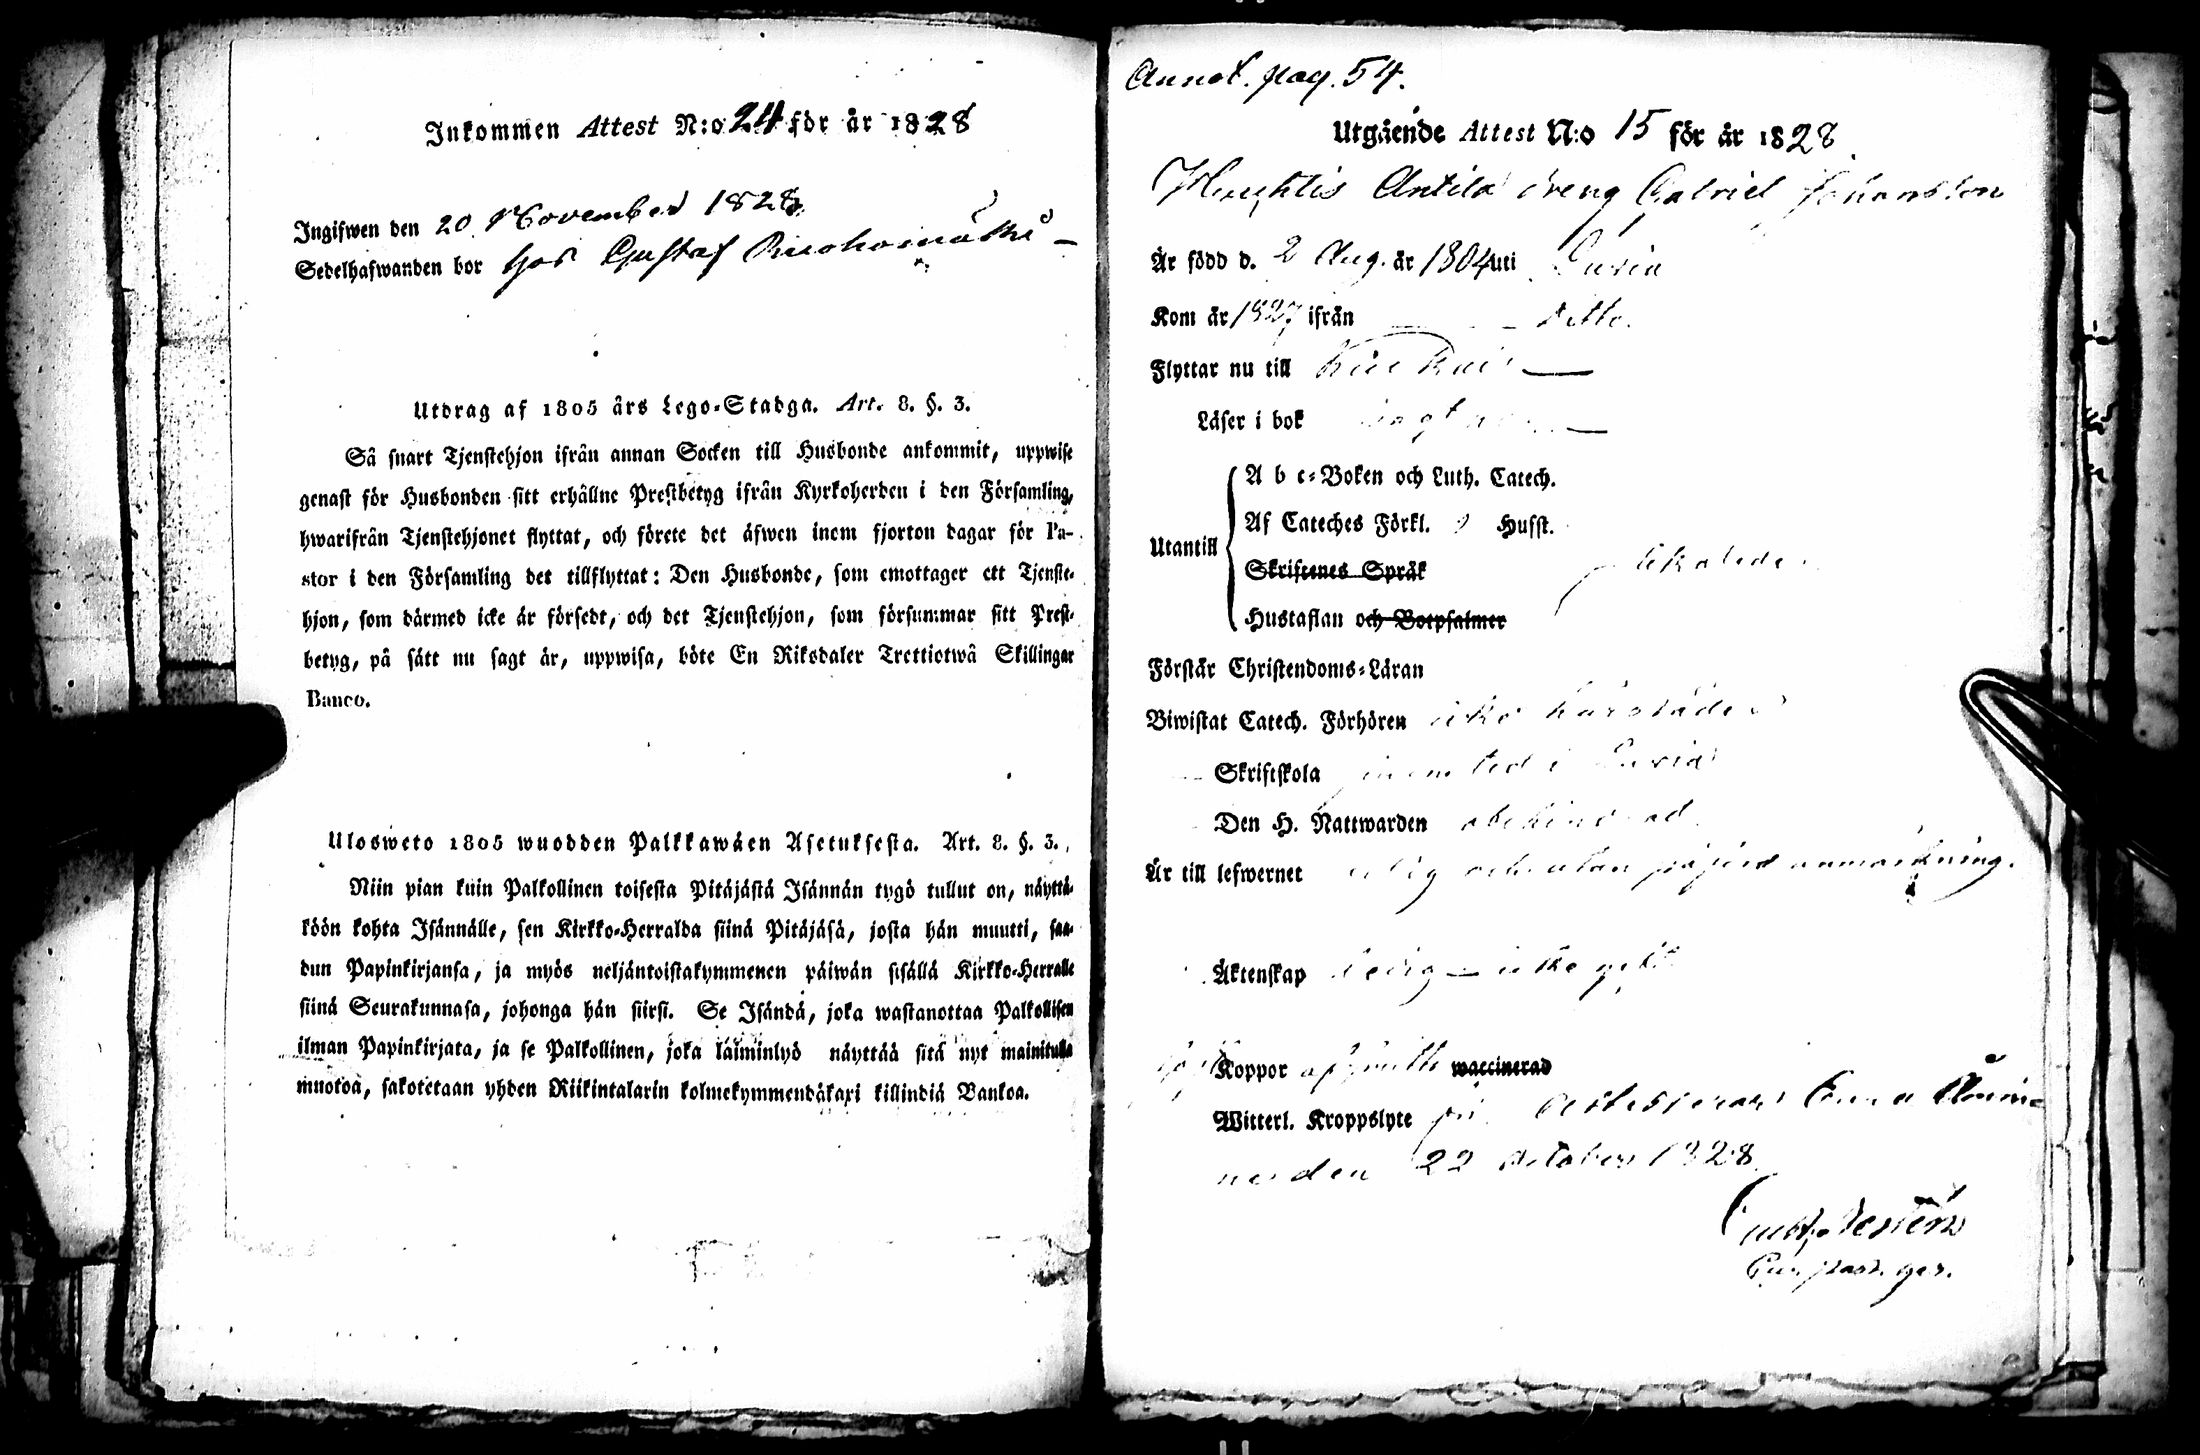 Inkommen Attest N:o 24 för år 1828
Ingifwen den 20 November 1828
Sedelhafwanden bor hos Gustaf Ruohomäki
Utdrag af 1805 års Lego-Stadga. Art. 8. §. 3.
Så snart Tjenstehjon ifrån annan Socken till Husbonde ankommit, uppwise
genast för Husbonden sitt erhållne Prestbetyg ifrån Kyrkoherden i den Församling,
hwarifrån Tjenstehjonet flyttat, och förete det äfwen inom fjorton dagar för Pa-
stor i den Församling det tillflyttat: Den Husbonde, som emottager ett Tjenste-
hjon, som därmed icke är försedt, och det Tjenstehjon, som försummar sitt Prest-
betyg, på sätt nu sagt är, uppwisa, böte En Riksdaler Trettiotwå Skillingar
Banco.
Ulosweto 1805 wuodden Palkkawäen Asetuksesta. Art. 8. §. 3.
Niin pian kuin Palkollinen toisesta Pitäjästä Isännän tygö tullut on, näyttä-
köön kohta Isännälle, sen Kirkko-Herralda siinä Pitäjäsä, josta hän muutti, saa-
dun Papinkirjansa, ja myös neljäntoistakymmenen päiwän sisällä Kirkko-Herralle
siinä Seurakunnasa, johonga hän siirsi. Se Isändä, joka wastanottaa Palkollisen
ilman Papinkirjata, ja se Palkollinen, joka läiminlyö näyttää sitä nyt mainitulla
muotoa, sakotetaan yhden Riikintalarin kolmekymmendäkaxi killindiä Bankoa.
Annot. pag. 54.
Utgående Attest N:o 15 för år 1828
Antila dreng Gabriel Johansson
Är född d. 2 Aug. år 1804 uti Luvia
Kom år 1827 ifrån ditto.
Flyttar nu till Kiukais
Läser i bok
Utantill
A b c-Boken och Luth. Catech.
Af Cateches Förkl. Husst.
Skriftenes Språk
Hustaflan och Botpsalmer
likaledes
Förstår Christendoms-Läran
Biwistat Catech. Förhören icke härstädes
Skriftskola i Luvia
Den H. Nattwarden obehindrad
Är till lefwernet ärlig och utan påförd anmärkning.
Äktenskap ledig – icke gift
Koppor waccinerad
Witterl. Kroppslyte fri. Attesterar
den 22 October 1828